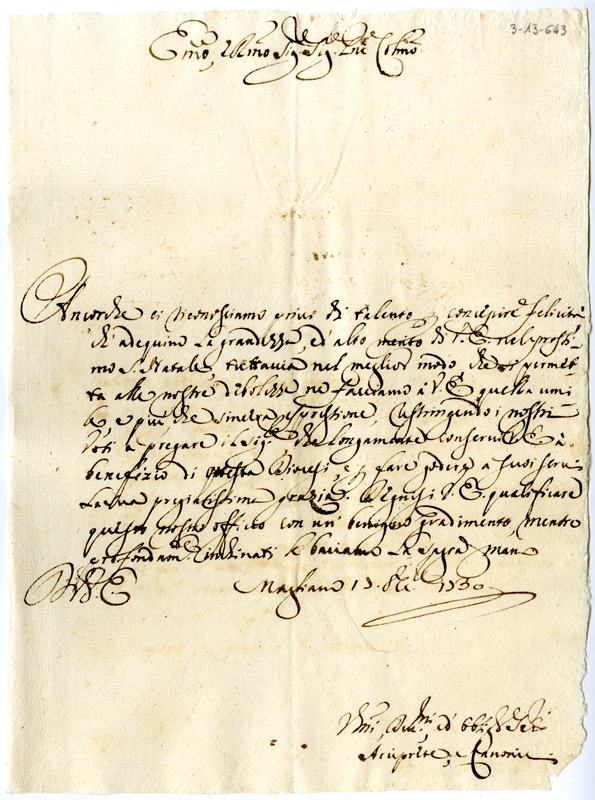 3-13-643
Emo, e Rmo Sig.re Sig.re Pne Colmo
Ancorche ci riconosciamo privi di talento p concepire felicità
che adequino la grandezza, ed alto merito di V. E. nel prossi-
mo S. Natale, tuttavia nel meglior modo che ci permet-
ta alle nostre debolezze ne facciamo à V E quella umi
le, e più che sincera espressione, costringendo i nostri
Voti a pregare il Sig.re che longamente conservi V E à
benefizio di questa Diocesi, e p fare godere a suoi servi
la sua pregiatissima grazia. Si degnesi V. E. qualificare
questo nostro officio con un' benigno gradimento, mentre
profondam.te inchinati le baciamo la sagra mano
Di V. E. Magliano 15 Xbre 1730
Umi Devmi, ed obbmi
Arciprete, e Canonici